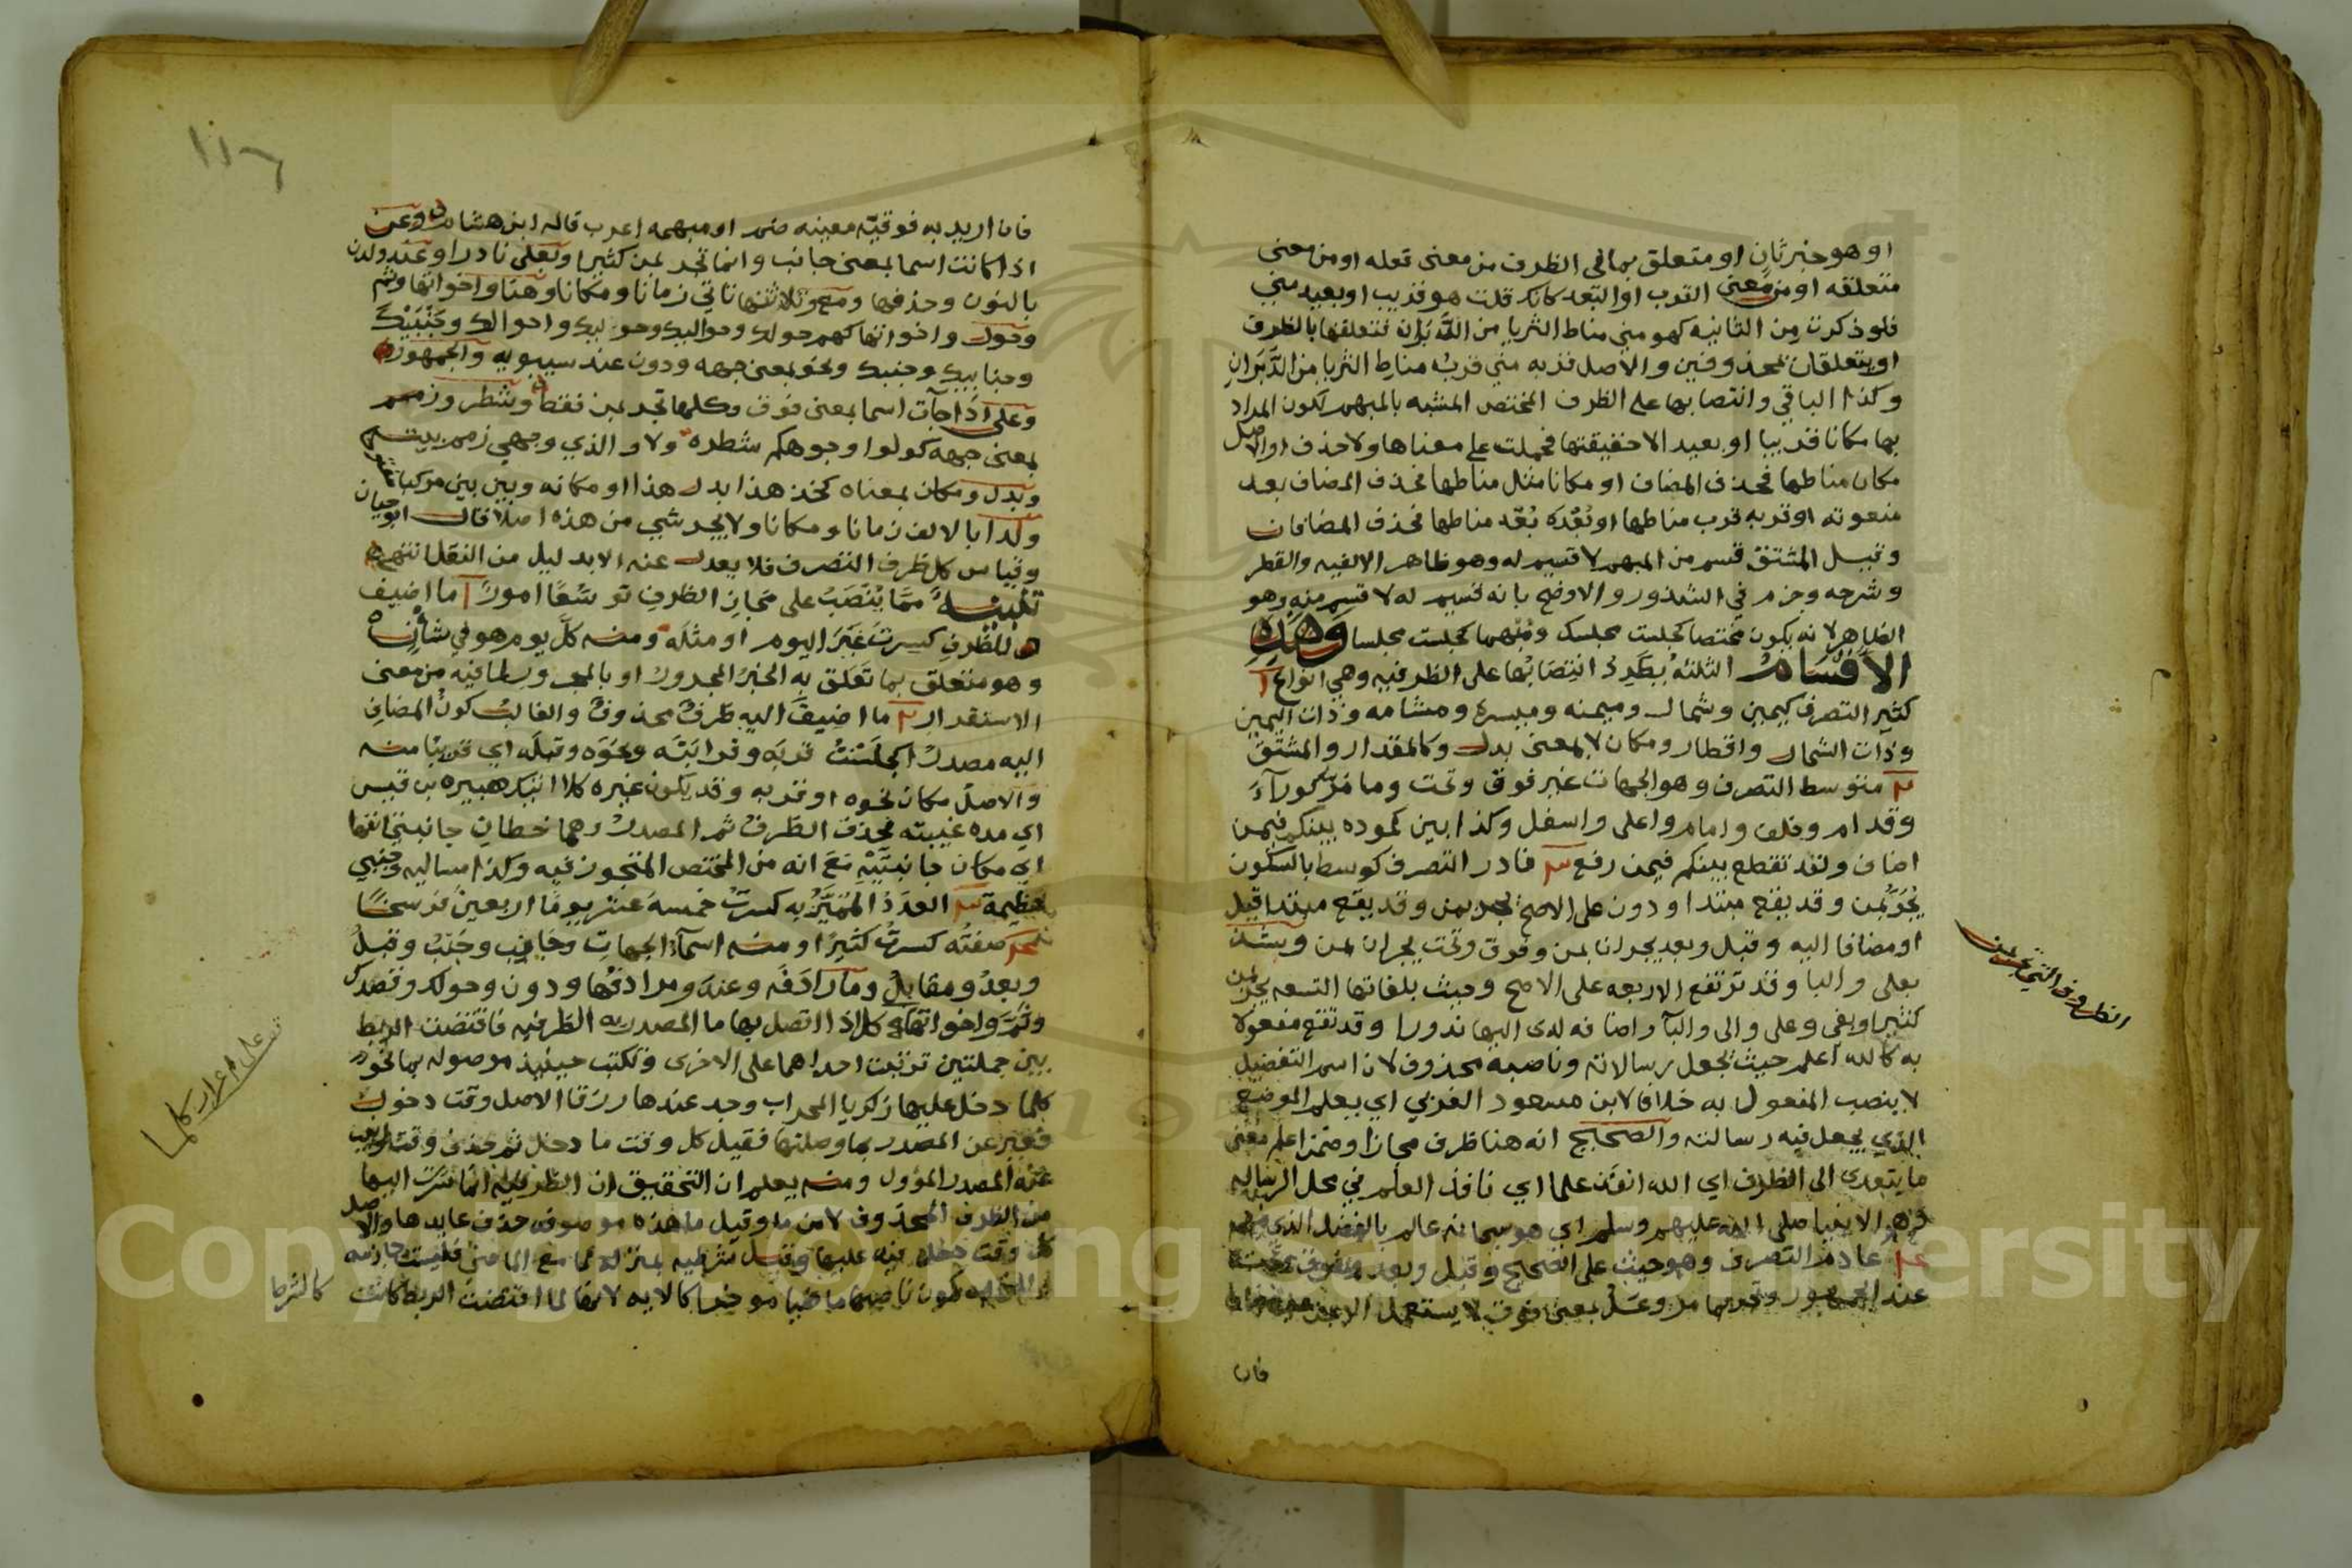 او هو خبر ثان او متعلق بما في الظرف من معنى فعله او من معنى
متعلقه او من معنى القرب او البعد كانك قلت هو قريب او بعيد مني
فلو ذكرت من الثانيه كهو مني مناط الثريا من الدبران فتعلقها بالظرف
او يتعلقان بمحذوفين والاصل قربه مني قرب مناط الثريا من الدبران
وكذا الباقي وانتصابها على الظرف المختص المشبه بالمبهم لكون المراد
بها مكانا قريبا او بعيد الا حقيقتها فحملت على معناها ولا حذف او الاصل
مكان مناطها فحذف المضاف او مكانا مثل مناطها فحذف المضاف بعد
منعوته او قربه قرب مناطها او بعده بعد مناطها فحذف المضافان
وقيل المشتق قسم من المبهم لا قسيم له وهو ظاهر الالفيه والقطر
وشرحه وجزم في الشذور والاوضح بانه قسيم له لا قسم منه وهو
الظاهر لانه يكون مختصا كجلست مجلسك ومبهما كجلست مجلسا وهذه
الاقسام الثلثة يطرد انتصابها على الظرفيه وهي انواع ا
كثير التصرف كيمين وشمال وميمنه وميسرة ومشامه وذات اليمين
وذات الشمال واقطار ومكان لا بمعنى بدل وكالمقدار والمشتق
٢ متوسط التصرف وهو الجهات غير فوق وتحت وما مر كورآء
وقدام وخلف وامام واعلى واسفل وكذا بين كموده بينكم فيمن
اضاف ولقد تقطع بينكم فيمن رفع ٣ نادر التصرف كوسط بالسكون
يجر بمن وقد يقع مبتدا ودون على الاصح يجر بمن وقد يقع مبتدا قيل
او مضافا اليه وقبل وبعد يجران بمن وفوق وتحت يجران بمن وشذ
بعلى والبا وقد ترتفع الاربعه على الاصح وحيث بلغاتها التسعه يجر بمن
كثيرا وبفي وعلى والى والبآء واضافه لدى اليها ندورا وقد تقع مفعولا
به كالله اعلم حيث يجعل رسالاته وناصبه محذوف لان اسم التفضيل
لا ينصب المفعول به خلافا لابن مسعود الغزني اي يعلم الموضع
الذي يجعل فيه رسالته والصحيح انه هنا ظرف مجازا وضمن اعلم معنى
ما يتعدى الى الظرف اي الله انفذ علما اي نافذ العلم في محل الرساله
الانبيا صلى الله عليهم وسلم اي هو سبحانه عالم بالفضل الذي
٤ عادم التصرف وهو حيث على الصحيح وقبل وبعد وفوق وتحت
عند الجمهور وعل بمعنى فوق لا يستعمل الا
فان
الظروف التي تجر بمن
١١٦
فان اريد به فوقية معينه ضم او مبهمه اعرب قاله ابن هشام وعن
اذا كانت اسما بمعنى جانب وانما تجر بمن كثيرا وبعلى نادرا وعند ولدن
بالنون وحذفها ومع وثلاثتها تاتي زمانا ومكانا وهنا واخواتها وثم
وحول واخواتها كهم حولك وحواليك وحوليك واحوالك وجنبيك
وجنابيك وجنبك ونحو بمعنى جهه ودون عند سيبويه والجمهور
وعلى اذا جآت اسما بمعنى فوق وكلها تجر بمن فقط وشطر وزمم
بمعنى جهه كولوا وجوهكم شطره ولا والذي وجهي زمم بيته
وبدل ومكان بمعناه كخذ هذا بدل هذا او مكانه وبين بين مركبا
وكذا بالالف زمانا ومكانا ولا يجر شي من هذه اصلا قال ابو حيان
وقياس كل ظرف التصرف فلا يعدل عنه الا بدليل من النقل انتهى
تنبيه مما ينصب على مجاز الظرف توسعا امور ا ما اضيف
للظرف كسرت غير اليوم او مثله ومنه كل يوم هو في شأن
وهو متعلق بما تعلق به الخبر المجرور او بالمجرور لما فيه من معنى
الاستقرار ٢ ما اضيف اليه ظرف محذوف والغالب كون المضاف
اليه مصدرا كجلست قربه وقرابته ونحوه وقبله اي قريبا منه
والاصل مكان نحوه او قربه وقد يكون غيره كلا اتيك هبيره بن قيس
اي مده غيبته فحذف الظرف ثم المصدر وهما خطان جانبتي انفها
اي مكان جانبتيه مع انه من المختص المتجوز فيه وكذا مساليه وجنبي
فطيمة ٣ العدد المميز به كسرت خمسة عشر يوما اربعين فرسخا
٤ صفته كسرت كثيرا ومنه اسمآء الجهات وجانب وجنب وقبل
وبعد ومقابل وما رادفه وعند ومرادفها ودون وحولك وقصدك
وثم واخواتها كل اذا اتصل بها ما المصدريه الظرفيه فاقتضت الربط
بين جملتين ترتبت احداهما على الاخرى وتكتب حينئذ موصوله بما نحو
كلما دخل عليها زكريا المحراب وجد عندها رزقا الاصل وقت دخول
فعبر عن المصدر بما وصلتها فقيل كل وقت ما دخل ثم حذف وقت وانيب
عنه المصدر المؤول ومنه يعلم ان التحقيق ان الظرفيه انما سرت اليها
من الظرف المحذوف لا من ما وقيل ما هذه موصوفه حذف عايدها والاصل
كل وقت دخل فيه عليها وقيل شرطيه
كون ناصبها ماضيا موخرا كالايه لانها لما اقتضت الربط كانت كالشرط
على اعراب كلما